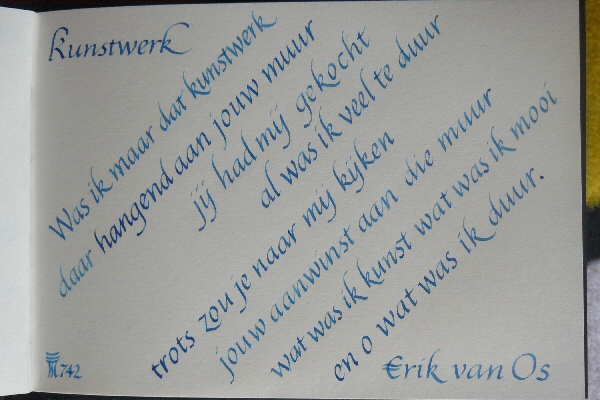 Kunstwerk
Was ik maar dat kunstwerk
daar hangend aan jouw muur
jij had mij gekocht
al was ik veel te duur
trots zou je naar mij kijken
jouw aanwinst aan die muur
wat was ik kunst wat was ik mooi
en o wat was ik duur.
€rik van Os
742